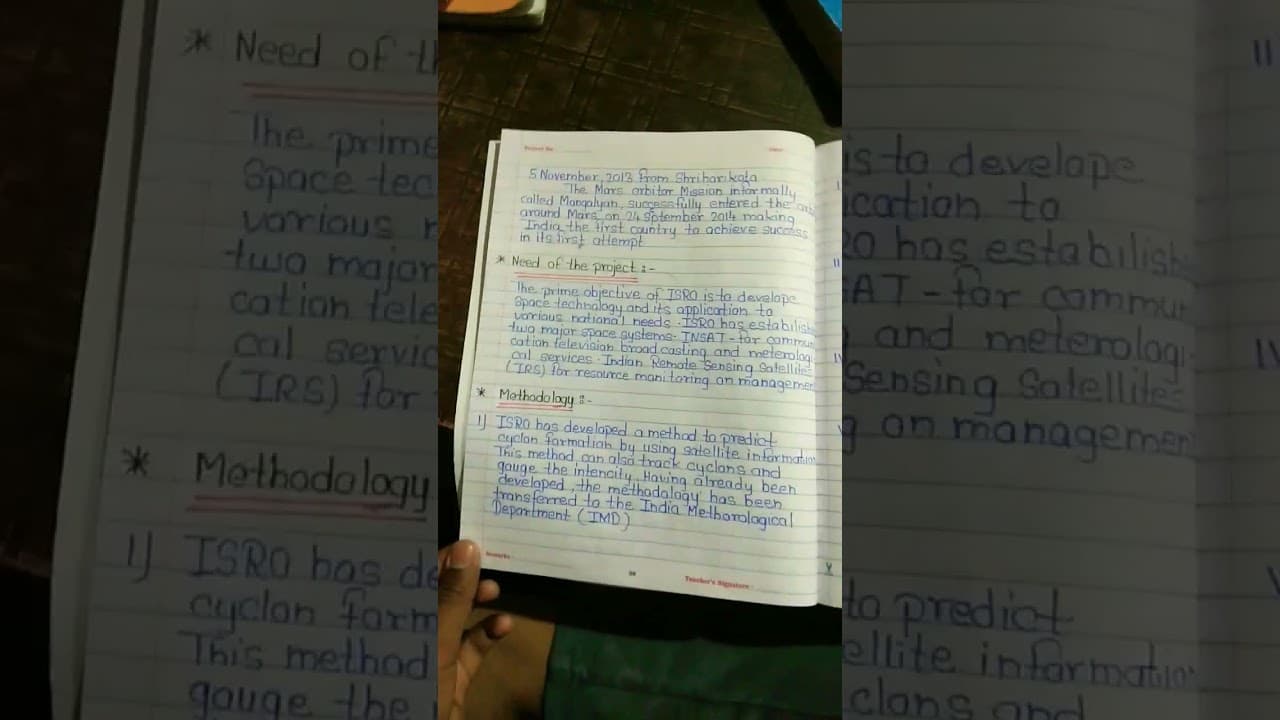 Project No.
Date:
5 November, 2013 from Shriharikota
The Mars orbitor Mission informally
called Mangalyan, successfully entered the orb
around Mars, on 24 Sptember 2014 making
India the first country to achieve success
in its first attempt
* Need of the project :-
The prime objective of ISRO is to develope
Space technology and its application to
various national needs. ISRO has estabilish
two major space systems. INSAT - for commun
cation television broad casting and meterologi
cal services. Indian Remote Sensing Satellites
(IRS) for resource monitoring on managemen
* Methodology :-
1) ISRO has developed a method to predict
cyclon formation by using satellite information
This method can also track cyclons and
gauge the intencity. Having already been
developed, the methodology has been
transferred to the India Methorological
Department (IMD)
Remarks
Teacher's Signature